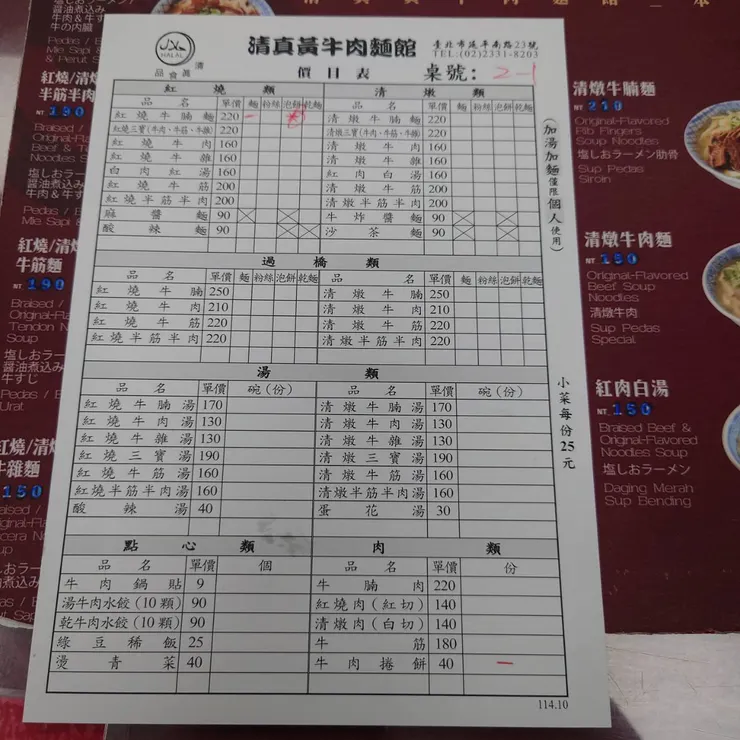 清真黃牛肉麵館
臺北市延平南路23號
TEL:(02)2331-8203
HALAL
清真食品
價目表 桌號: 2-1
紅燒類 清燉類
品名 單價 麵 粉絲 泡餅 乾麵 品名 單價 麵 粉絲 泡餅 乾麵
紅燒牛腩麵 220 一 清燉牛腩麵 220
紅燒三寶(牛肉、牛筋、牛雜) 220 清燉三寶(牛肉、牛筋、牛雜) 220
紅燒牛肉 160 清燉牛肉 160
紅燒牛雜 160 清燉牛雜 160
白肉紅湯 160 紅肉白湯 160
紅燒牛筋 200 清燉牛筋 200
紅燒半筋半肉 200 清燉半筋半肉 200
麻醬麵 90 牛炸醬麵 90
酸辣麵 90 沙茶麵 90
(加湯加麵僅限個人使用)
過橋類
品名 單價 麵 粉絲 泡餅 乾麵 品名 單價 麵 粉絲 泡餅 乾麵
紅燒牛腩 250 清燉牛腩 250
紅燒牛肉 210 清燉牛肉 210
紅燒牛筋 220 清燉牛筋 220
紅燒半筋半肉 220 清燉半筋半肉 220
湯類
品名 單價 碗(份) 品名 單價 碗(份)
紅燒牛腩湯 170 清燉牛腩湯 170
紅燒牛肉湯 130 清燉牛肉湯 130
紅燒牛雜湯 130 清燉牛雜湯 130
紅燒三寶湯 190 清燉三寶湯 190
紅燒牛筋湯 160 清燉牛筋湯 160
紅燒半筋半肉湯 160 清燉半筋半肉湯 160
酸辣湯 40 蛋花湯 30
小菜每份25元
點心類 肉類
品名 單價 個 品名 單價 份
牛肉鍋貼 9 牛腩肉 220
湯牛肉水餃(10顆) 90 紅燒肉(紅切) 140
乾牛肉水餃(10顆) 90 清燉肉(白切) 140
綠豆稀飯 25 牛筋 180
燙青菜 40 牛肉捲餅 40 一
114.10
醤油煮込み
牛肉&牛筋
牛の内臓
Pedas /
Mie Sapi
& Perut S
紅燒/清燉
半筋半肉
NT 190
Braised /
塩しおラーメン
醤油煮込み
牛肉&牛筋
Pedas / B
Mie Sapi &
紅燒/清燉
牛筋麵
NT 190
Braised /
Original-Fla
Tendon N
Soup
塩しおラーメン
醤油煮込み
牛すじ
Pedas / E
Urat
紅燒/清燉
牛雜麵
150
清燉牛腩麵
NT 210
Original-Flavored
Rib Fingers
Soup Noodles
塩しおラーメン肋骨
Sup Pedas
Sirloin
清燉牛肉麵
NT 150
Original-Flavored
Beef Soup
Noodles
清燉牛肉
Sup Pedas
Special
紅肉白湯
NT 150
Braised Beef &
Original-Flavored
Noodles Soup
塩しおラーメン
Daging Merah
Sup Bending